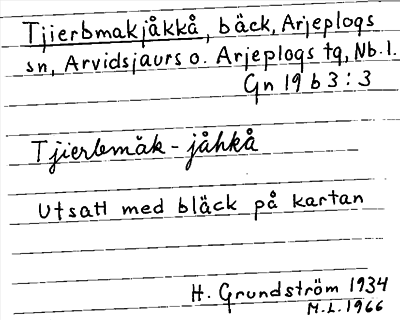 Tjierbmakjåkkå, bäck, Arjeplogs
sn, Arvidsjaurs o. Arjeplogs tg, Nb.l.
Gn 19 b 3:3
Tjierbmāk-jåhkå
Utsatt med bläck på kartan
H. Grundström 1934
M.L. 1966